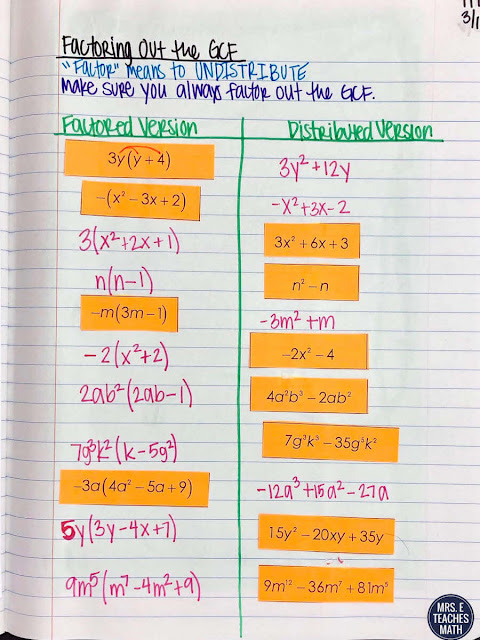 3/1
Factoring Out the GCF
"Factor" means to UNDISTRIBUTE
Make sure you always factor out the GCF.
Factored Version Distributed Version
3y(y + 4) 3y²+12y
−(x² − 3x + 2) -x²+3x-2
3(x²+2x+1) 3x² + 6x + 3
n(n-1) n² − n
−m(3m − 1) -3m²+m
-2(x²+2) −2x² − 4
2ab²(2ab-1) 4a²b³ − 2ab²
7g³k²(k-5g²) 7g³k³ − 35g⁵k²
−3a(4a² − 5a + 9) -12a³+15a²-27a
5y(3y-4x+7) 15y² − 20xy + 35y
9m⁵(m⁷-4m²+9) 9m¹² − 36m⁷ + 81m⁵
MRS. E
TEACHES
MATH